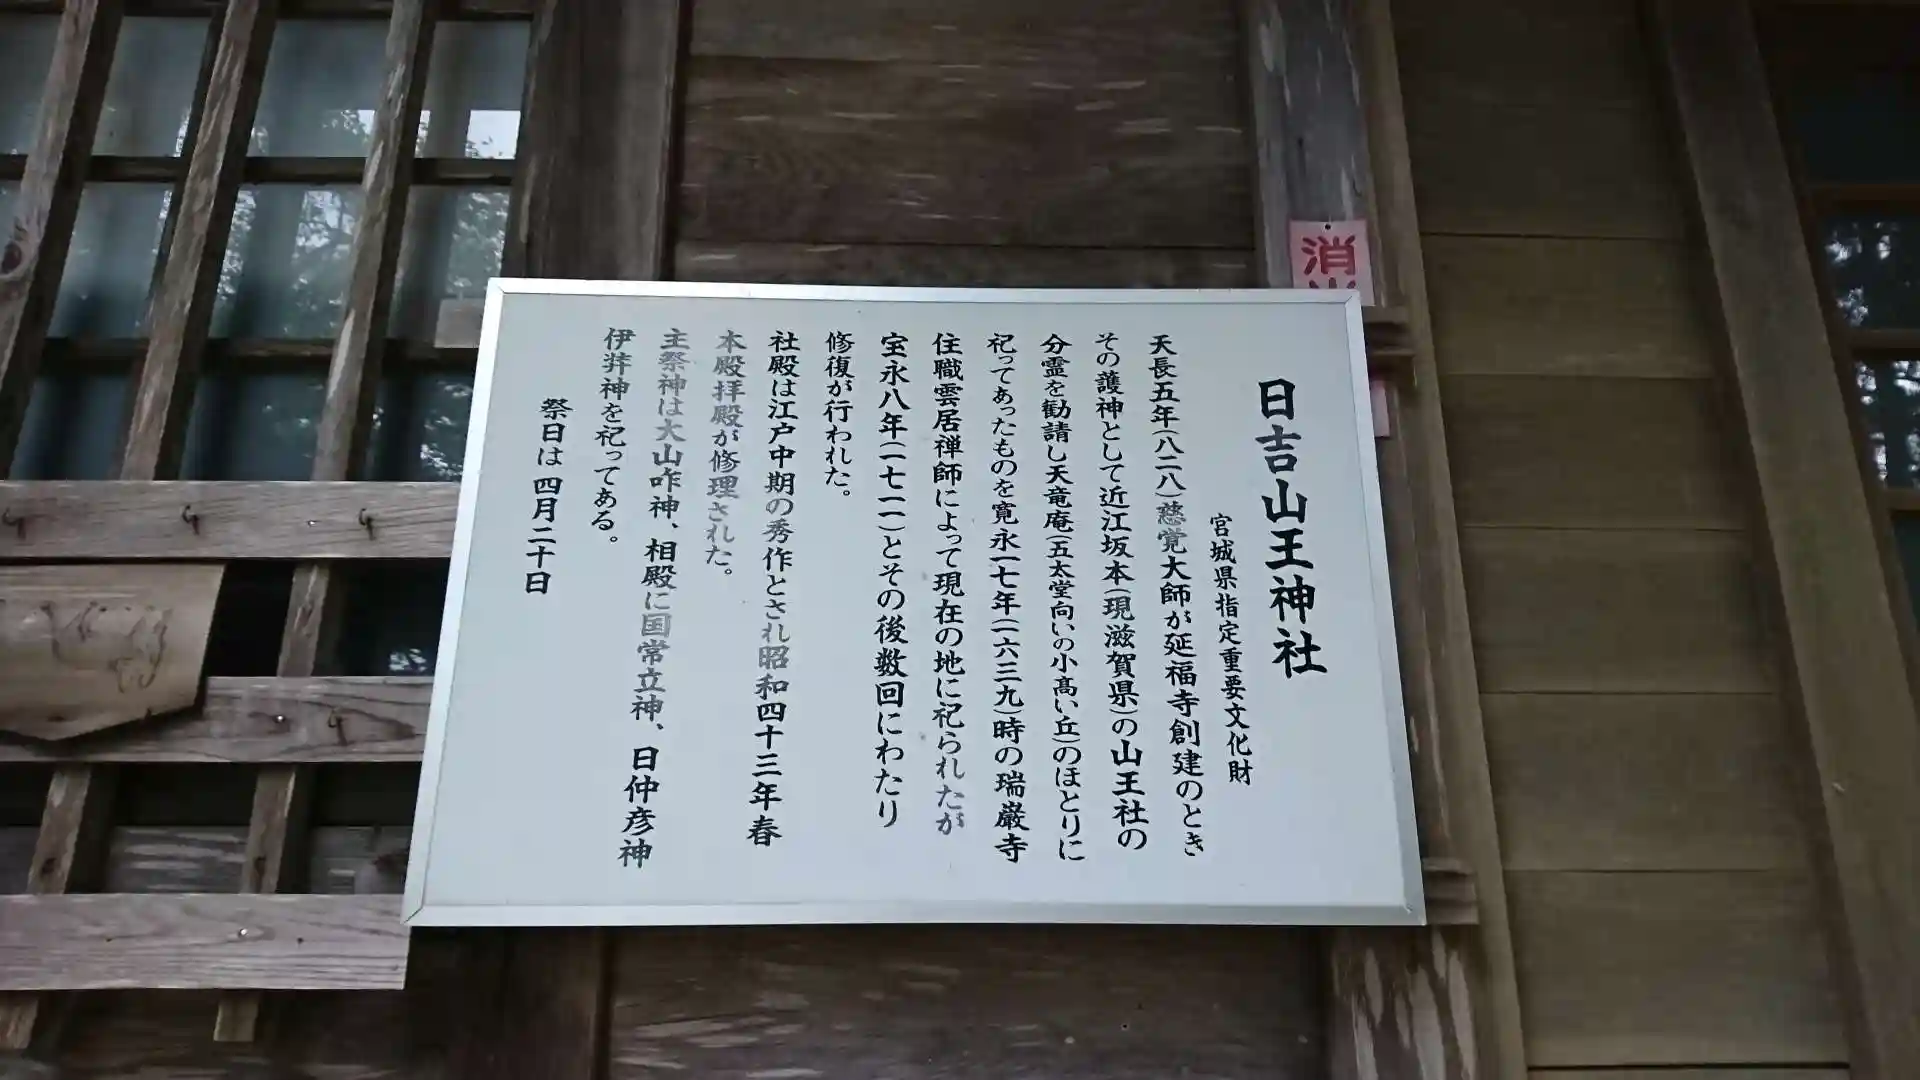 日吉山王神社
宮城県指定重要文化財
天長五年(八二八)慈覚大師が延福寺創建のとき
その護神として近江坂本(現滋賀県)の山王社の
分霊を勧請し天竜庵(五太堂向いの小高い丘)のほとりに
祀ってあったものを寛永一七年(一六三九)時の瑞巌寺
住職雲居禅師によって現在の地に祀られたが
宝永八年(一七一一)とその後数回にわたり
修復が行われた。
社殿は江戸中期の秀作とされ昭和四十三年春
本殿拝殿が修理された。
主祭神は大山咋神、相殿に国常立神、日仲彦神
伊弉神を祀ってある。
祭日は四月二十日
消